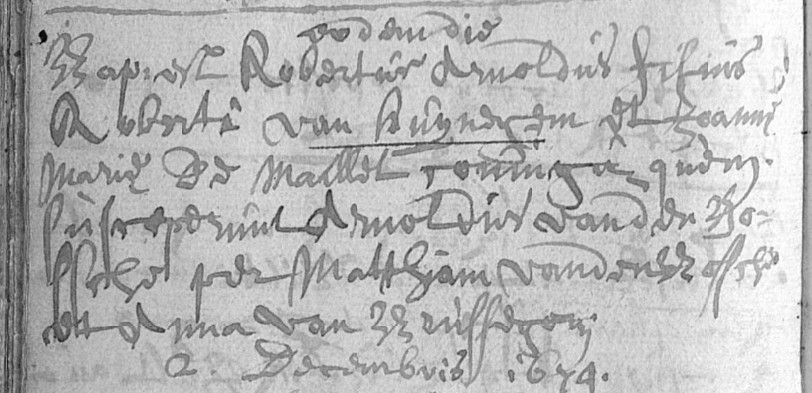 eodem die
Baptist Robertus Arnoldus filius
Roberti van Kuynegem et Joannę
Marię De Mallet coniugū quem
susceperunt Arnoldus vanden Bo-
ssche per Matthiam vanden Bossche
et Anna van Brussegem
2. Decembris 1674.